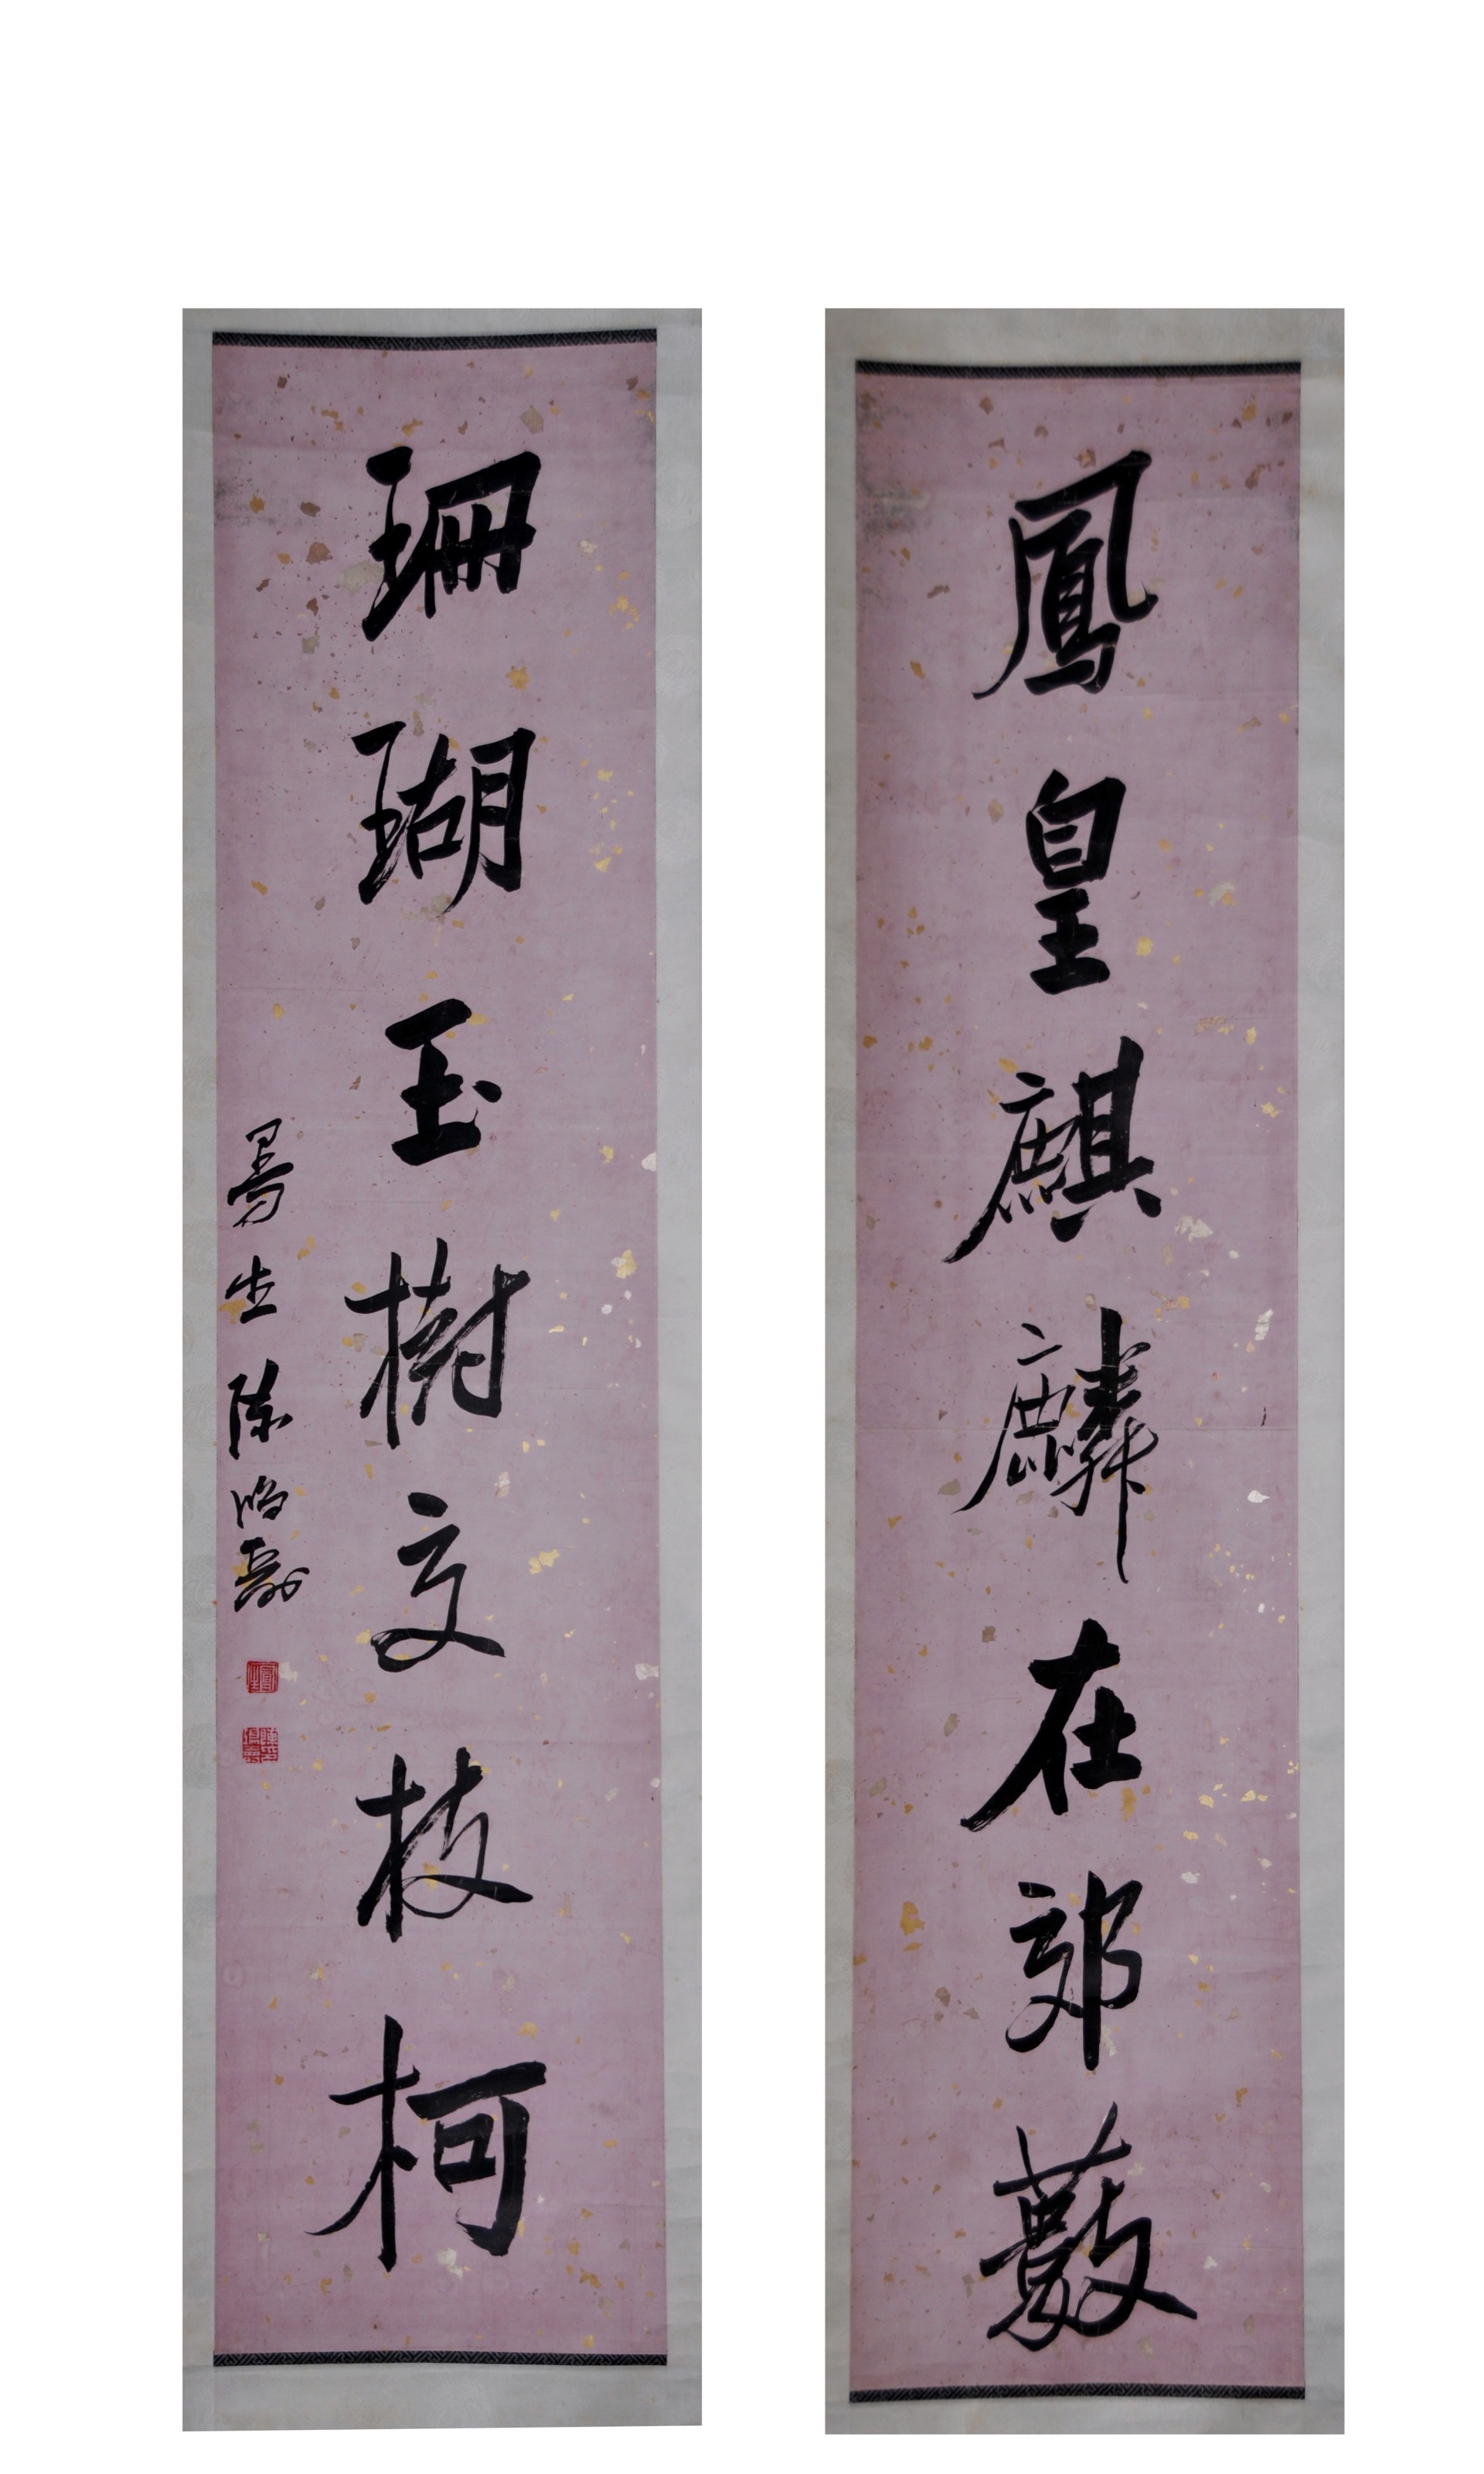 鳳皇麒麟在郊藪
珊瑚玉樹交枝柯
曼生陳鴻壽